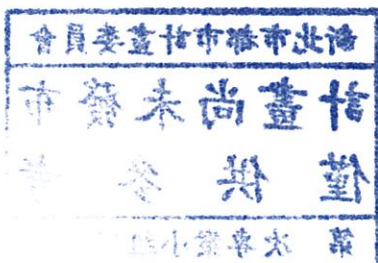 新北市都市計畫委員會
計畫尚未發布
僅供參考
第 次專案小組